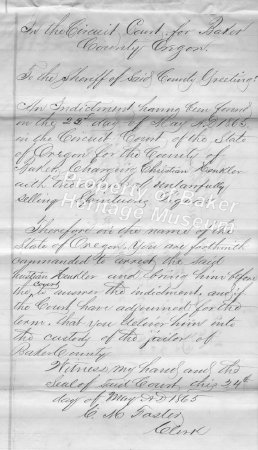 In the Circuit Court for Baker
County Oregon.
To the Sheriff of Said County Greeting:
An Indictment having been found
on the 22d day of May A.D. 1865,
in the Circuit Court of the State
of Oregon for the County of
Baker, Charging Christian Kunkler
with the of unlawfully
selling Spirituous liquors
Therefore in the name of the
State of Oregon, You are forthwith
commanded to arrest the said
Christian Kunkler and bring him before
the Court to answer the indictment, and if
the Court have adjourned for the
term, that you deliver him into
the custody of the jailor of
Baker County
Witness my hand and the
Seal of said Court, this 24th
day of May A.D 1865
C. M. Foster
Clerk
Property of Baker
Heritage Museum